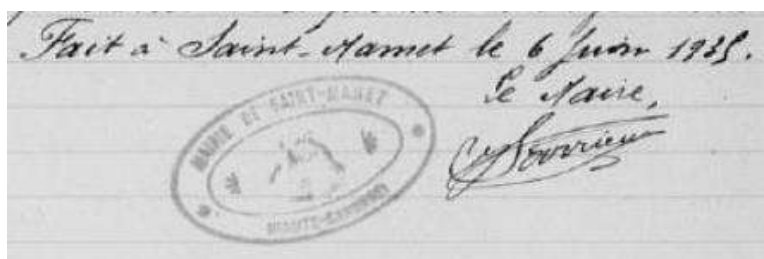 Fait à Saint-Mamet le 6 Juin 1935.
Le Maire,
MAIRIE DE SAINT-MAMET
HAUTE-GARONNE